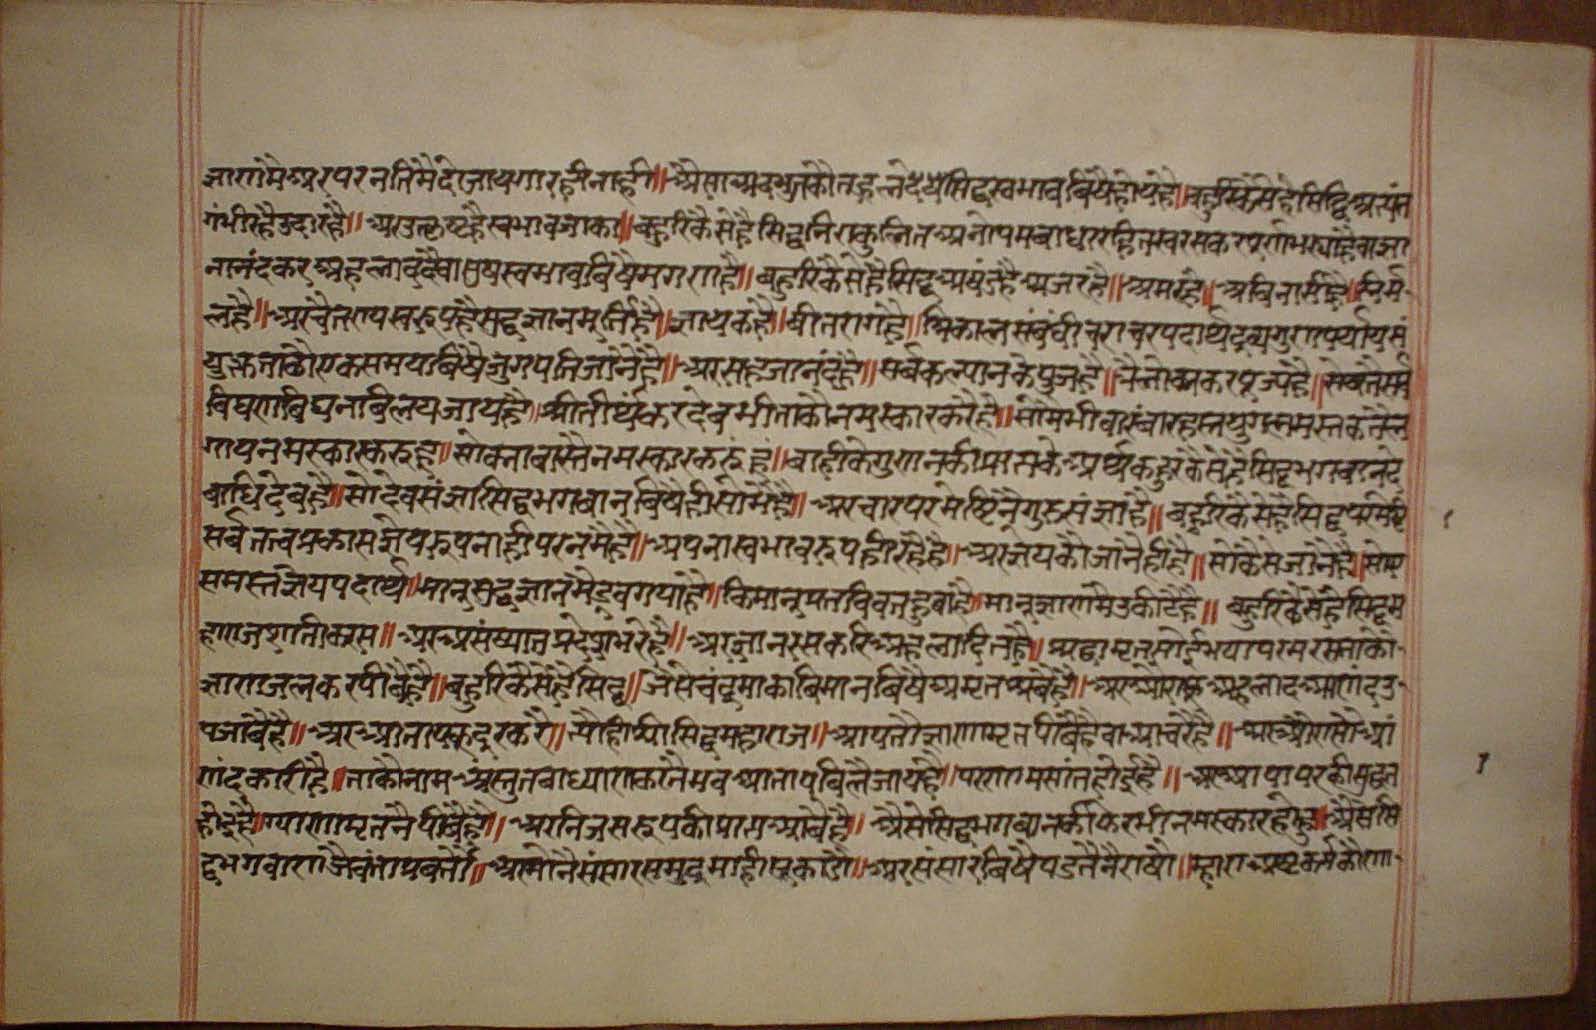 ज्ञाण मै अर परनति मै दोजायगा रही नाही॥ अैसा अदभुत कौतूहल देषो सिद्ध स्वभाव बिषै होय है॥ बहुरि कैसे है सिद्ध अत्यंत
गंभीर है उदार है॥ अर उत्कृष्ट है स्वभाव जाका॥ बहुरि कैसे है सिद्ध निराकुलित अनोपम बाधा रहित स्वरस कर पूर्ण भर्या है वा ज्ञा
नानंद कर अहलाद है वा सुष स्वभाव बिषै मगण है॥ बहुरि कैसे है सिद्ध अषंड है अजर है॥ अमर है॥ अबिनासी है॥ निर्म
ल है॥ अर चेतणा स्वरूप है सुद्ध ज्ञान मूर्ति है॥ ज्ञायक है॥ बीतराग है॥ त्रिकाल संबंधी चराचर पदार्थ द्रव्य गुण पर्याय सं
युक्त ताकौ एक समय बिषै जुगपति जानै है॥ अर सहजानंद है॥ सर्व कल्यान के पुंज है॥ त्रैलोक्य कर पूज्य है॥ सेवत सर्व
बिघण बिघन बिलय जाय है॥ श्री तीर्थंकर देव भी ताकौ नमस्कार करै है॥ सो मै भी बारंबार हस्त युगल मस्तक नै ल
गाय नमस्कार करू हूं॥ सो क्या वास्तै नमस्कार करूं हूं॥ वाही के गुण की प्राप्ति के अर्थ बहुरि कैसे है सिद्ध भगवान दे
वाधिदेव है॥ सो देव संज्ञा सिद्ध भगवान बिषै ही सोभै है॥ अर चार परमेष्टि नै गुरु संज्ञा है॥ बहुरि कैसे है सिद्ध परमेष्टि
सर्व तत्व प्रकास ज्ञेय रूप नाही परनमै है॥ अपना स्वभाव रूप ही रहै है॥ अर ज्ञेय कौ जानै ही है॥ सो कैसे जानै है॥ सो ए
समस्त ज्ञेय पदार्थ॥ मानु सुद्ध ज्ञान मै डूब गया है॥ कि मानु प्रतबिंबत हुवा है॥ मानु ज्ञाण मै उकीटै है॥ बहुरि कैसे है सिद्ध म
हाराज शांतीकरस॥ अर असंष्यात प्रदेश भरे है॥ अर ज्ञान रस करि अहलादित है॥ सुद्धामृत सोई भया परम रस ताको
ज्ञाणांजल कर पीवै है॥ बहुरि कैसे है सिद्ध॥ जैसे चंद्रमा का बिमान बिषै अमृत श्रवै है॥ अर औराकू अहलाद आणंद उ
पजावै है॥ अर आताप कू दूर करै॥ त्यौही श्री सिद्ध महाराज॥ आप तौ ज्ञाणामृत पीवै है वा आचरै है॥ अर औराकौ आ
णंदकारी है॥ ताकौ नाम अस्तुत वा ध्यान करतै भव आताप बिलै जाय है॥ परणाम सांत होई है॥ अर आपा पर की सुद्धता
होई है॥ ग्याणामृत नै पीवै है॥ अर निज स्वरूप की प्राप्त आवै है॥ अैसे सिद्ध भगवान की फेर भी नमस्कार होहु॥ अैसे सि
द्ध भगवाण जैवंता प्रवर्तो॥ अर मोनै संसार समुद्र माही सू काढौ॥ अर संसार बिषै पडतै नै राषौ॥ म्हारा अष्ट कर्म कौ णा